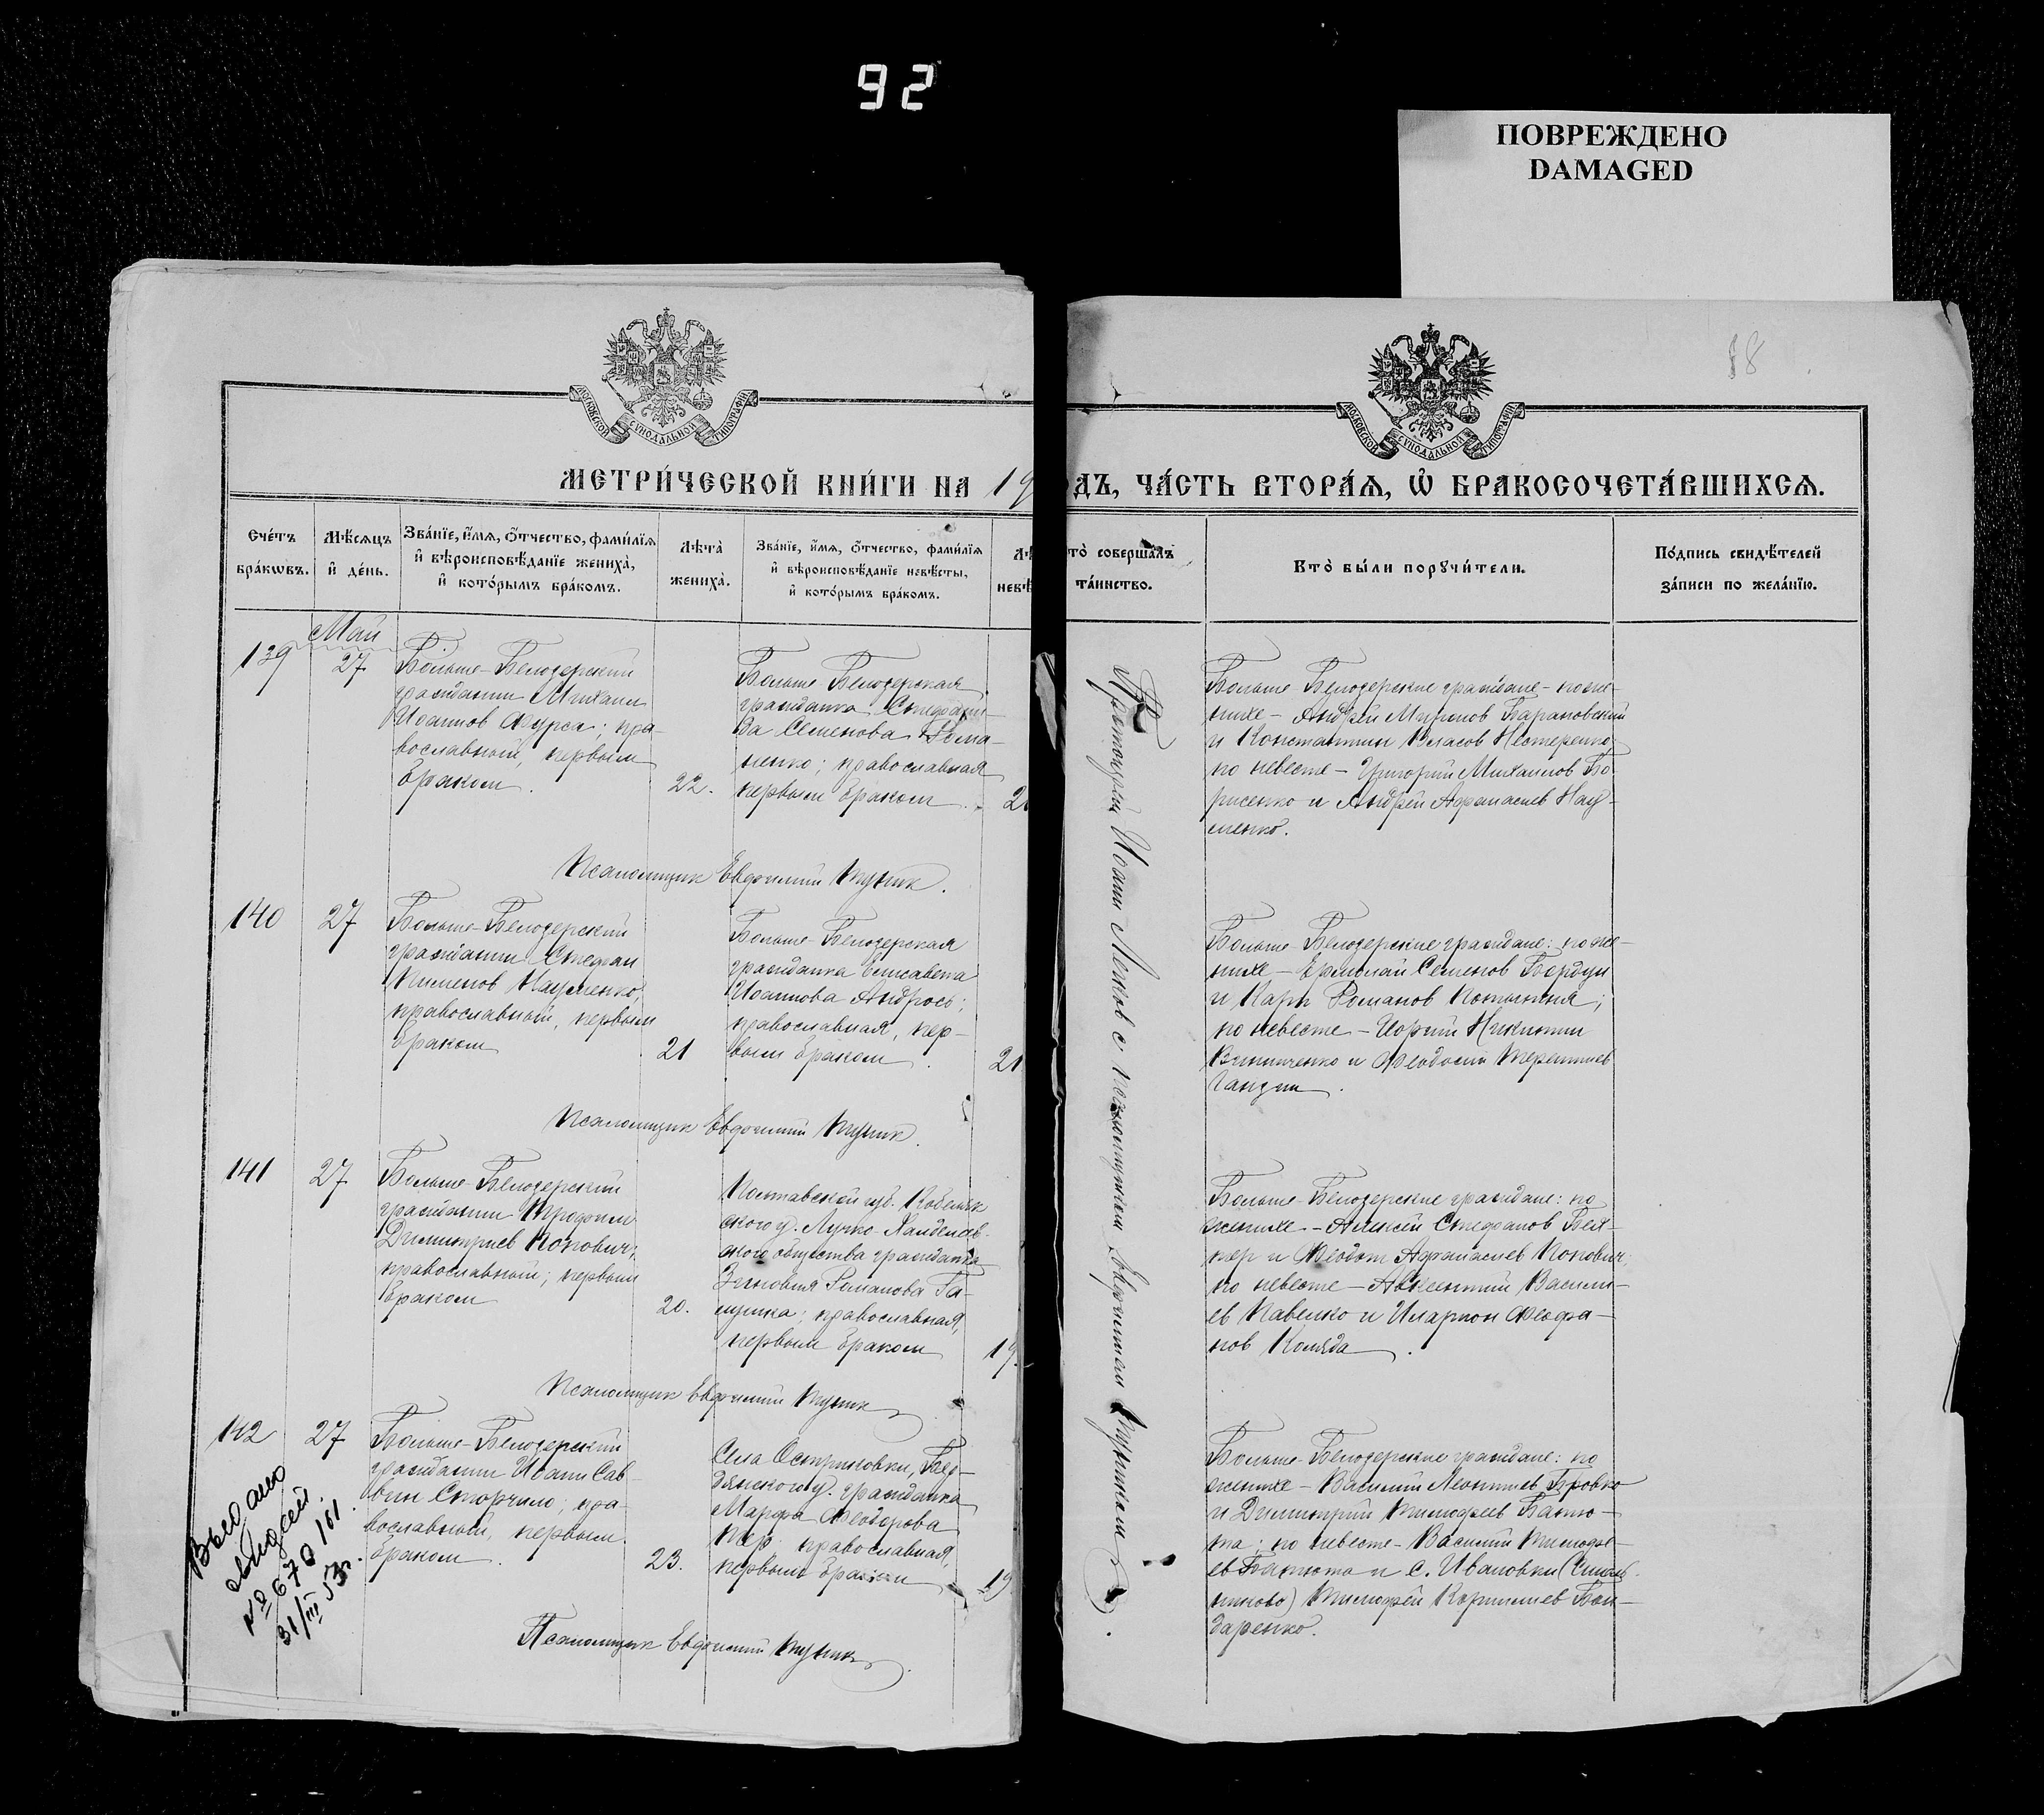 92
ПОВРЕЖДЕНО
DAMAGED
88
МОСКОВСКОЙ СѴНОДАЛЬНОЙ ТИПОГРАФІИ
МОСКОВСКОЙ СѴНОДАЛЬНОЙ ТИПОГРАФІИ
МЕТРИ́ЧЕСКОЙ КНИ́ГИ НА 19
ДЪ, ЧА́СТЬ ВТОРА́Я, Ѽ БРАКОСОЧЕТА́ВШИХСЯ.
Сче́тъ бра́кѡвъ.
Мѣ́сяцъ и҆ де́нь.
Зва́нїе, и҆́мя, ѻ҆́тчество, фами́лїя
и҆ вѣроисповѣ́данїе жениха̀,
и҆ кото́рымъ бра́комъ.
Лѣ́та жениха̀.
Зва́нїе, и҆́мя, ѻ҆́тчество, фами́лїя
и҆ вѣроисповѣ́данїе невѣ́сты,
и҆ кото́рымъ бра́комъ.
Лѣ
невѣ
то̀ соверша́лъ
та́инство.
Кто̀ бы́ли порꙋчи́тели.
По́дпись свидѣ́телей
за́писи по жела́нїю.
Май
139
27
Больше-Белозерский
гражданин Михаил
Иоаннов Фурса; пра-
вославный, первым
браком.
22.
Больше-Белозерская
гражданка Стефани-
да Семенова Рома-
ненко; православная
первым браком.
2
Больше-Белозерские граждане - по же-
нихе - Андрей Миронов Барановский
и Константин Власов Нестеренко;
по невесте - Григорий Михаилов Бо-
рисенко и Андрей Афанасиев Нау-
менко.
Псаломщик Евфимий Тупик.
140
27
Больше-Белозерский
гражданин Стефан
Пименов Науменко,
православный, первым
браком
21
Больше-Белозерская
гражданка Елисавета
Иоаннова Андрось;
православная, пер-
вым браком.
21
Больше-Белозерские граждане: по же-
нихе - Ермолай Семенов Бердун
и Карп Романов
по невесте - Никитин
Винниченко и Феодосий Терентиев
Ганзин.
Псаломщик Евфимий Тупик.
141
27
Больше-Белозерский
гражданин Трофим
Димитриев Попович;
православный; первым
браком
20.
Полтавской губ. Кобеляк
ского у.
ского общества гражданка
Зиновия Романова Га-
православная,
первым браком
19.
Больше-Белозерские граждане: по
женихе - Алексей Стефанов Бек-
кер и Феодот Афанасиев Попович;
по невесте - Авксентий Васили-
ев Павелко и Иларион Феофа-
нов Коляда.
Псаломщик Евфимий Тупик
142
27
Больше-Белозерский
гражданин Иоанн Сав-
вин Сторчило; пра-
вославный, первым
браком.
23.
Села Остриковки, Бер-
дянского у. гражданка
Марфа Феодорова
Тер православная,
первым браком
19
Больше-Белозерские граждане: по
женихе - Василий Леонтиев Бровко
и Димитрий Тимофеев Баню-
та; по невесте - Василий Тимофе-
ев Банюта и с. Ивановки
Тимофей Корнилиев Бон-
даренко.
Псаломщик Евфимий Тупик.
Протоиерей Иоанн с псаломщиком Евфимием Тупиком.
Выдано
№ 670161
31/III 53г.